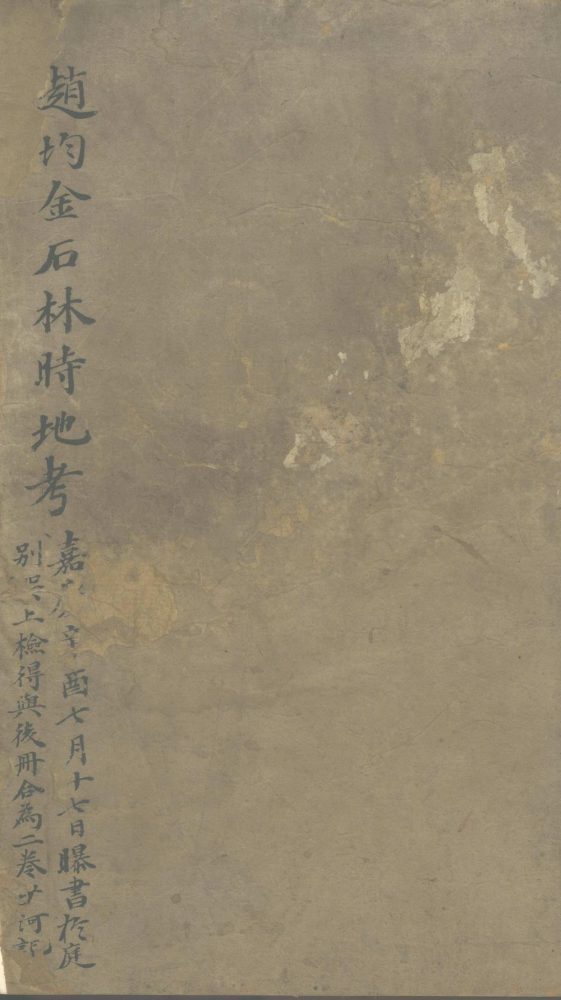 趙均金石林時地考
嘉慶辛酉七月十七日曝書於庭
別上檢得與後冊合為二卷少河記